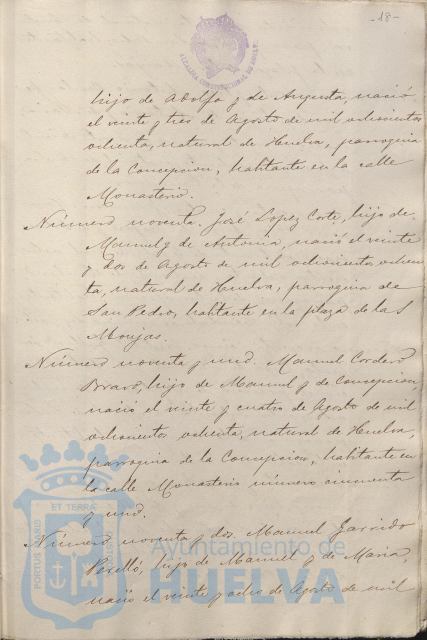 -18-
ALCALDIA CONSTITUCIONAL DE HUELVA
hijo de Adolfo y de Augusta, nació
el veinte y tres de Agosto de mil ochocientos
ochenta, natural de Huelva, parroquia
de la Concepcion, habitante en la calle
Monasterio.
Número noventa. José Lopez Corte, hijo de
Manuel y de Antonia, nació el veinte
y dos de Agosto de mil ochocientos ochen
ta, natural de Huelva, parroquia de
San Pedro, habitante en la plaza de las
Monjas.
Número noventa y uno. Manuel Cordero
Bravo, hijo de Manuel y de Concepcion,
nació el veinte y cuatro de Agosto de mil
ochocientos ochenta, natural de Huelva,
parroquia de la Concepcion, habitante en
la calle Monasterio número cincuenta
y uno.
Número noventa y dos. Manuel Garrido
Perelló, hijo de Manuel y de Maria,
nació el veinte y ocho de Agosto de mil
PORTUS MARIS ET TERRAE CUSTODIA
Ayuntamiento de
HUELVA